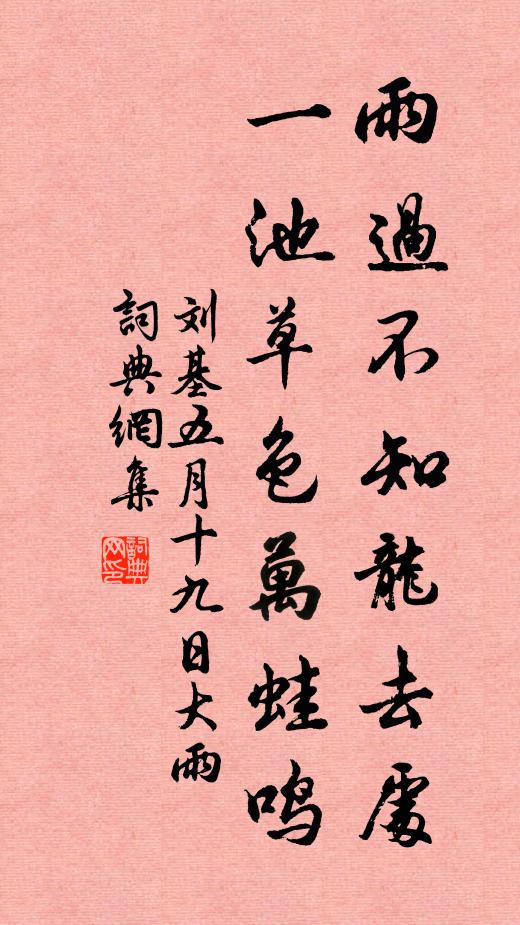 雨過不知龍去處
一池草色萬蛙鳴
刘基五月十九日大雨
詞典網集
詞典網印